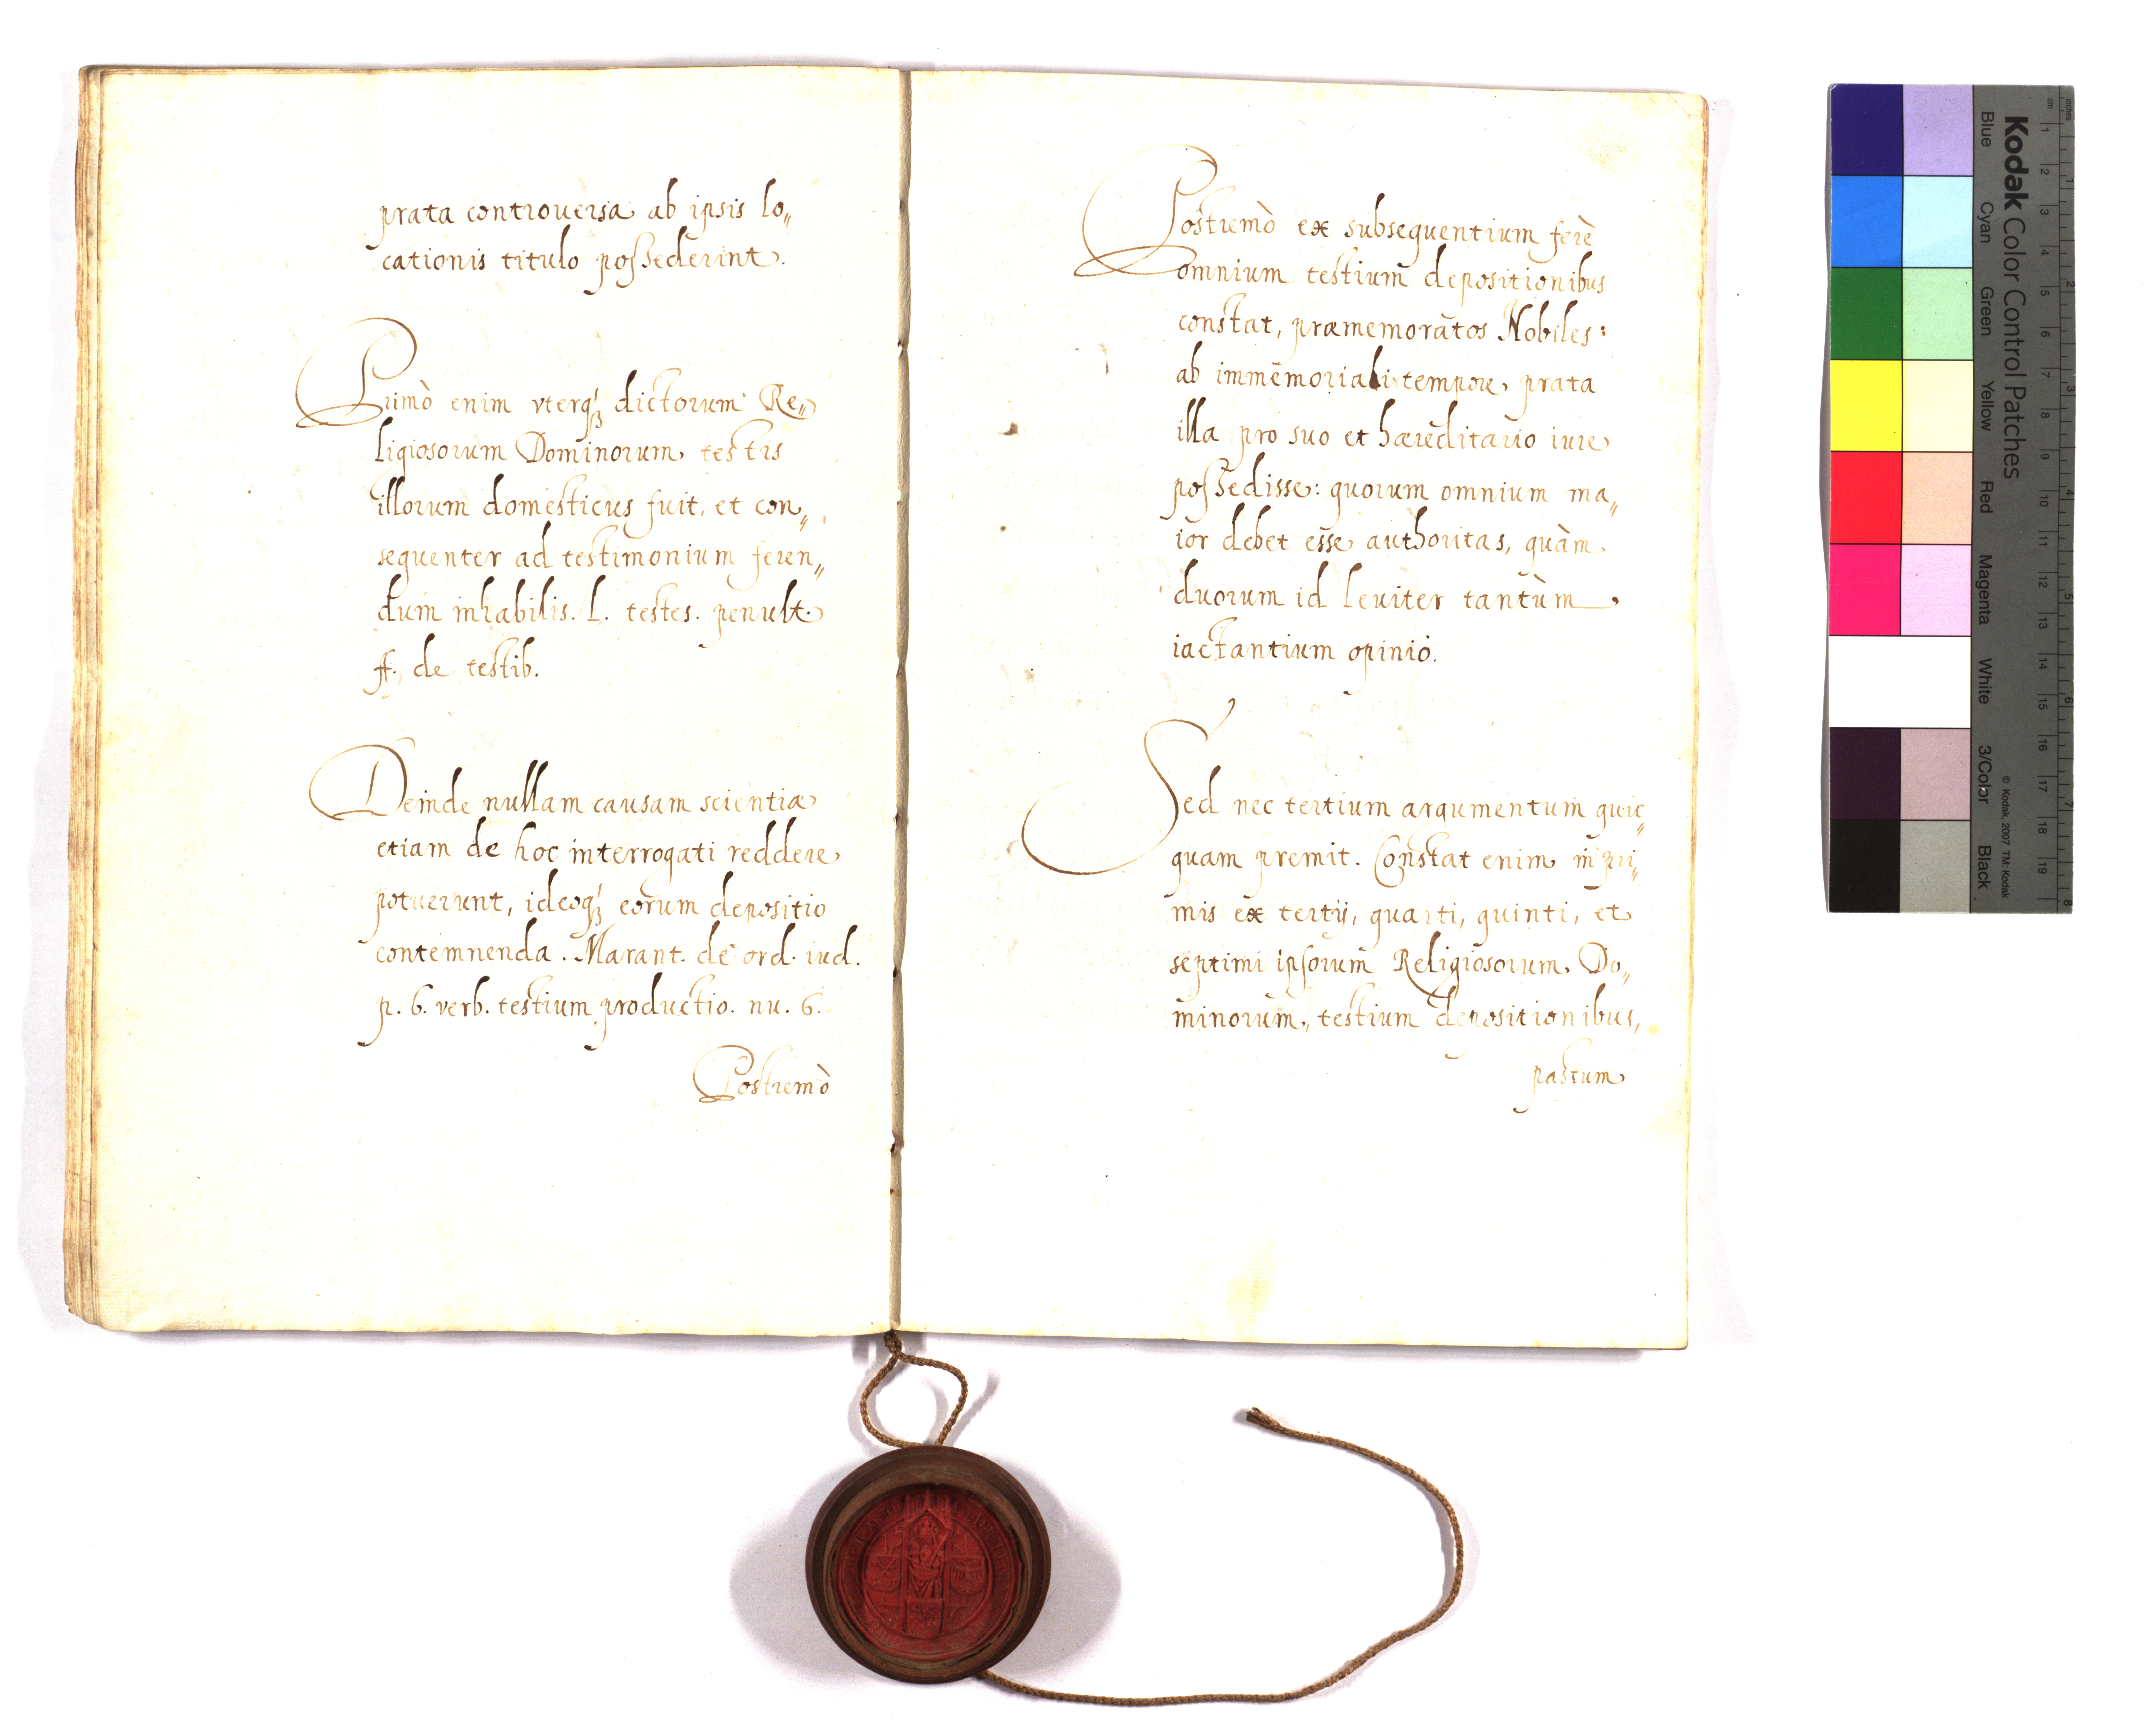 prata controuersa ab ipsis lo„
cationis titulo possederint.
Primò enim vterq₃ dictorum Re„
ligiosorum Dominorum testis
illorum domesticus fuit, et con„
sequenter ad testimonium feren„
dum inhabilis. l. testes. penult.
ff. de testib.
Deinde nullam causam scientiæ
etiam de hoc interrogati reddere
potuerunt, ideoq₃ eorum depositio
contemnenda. Marant. de ord. iud.
p. 6. verb. testium productio. nu. 6.
Postremò
Postremò ex subsequentium ferè
omnium testium depositionibus
constat, præmemoratos Nobiles:
ab immemoriabi tempore, prata
illa pro suo et hæreditario iure
possedisse: quorum omnium ma„
ior debet esse authoritas, quàm
duorum id leuiter tantùm
iactantium opinio.
Sed nec tertium argumentum quic„
quam premit. Constat enim in pri„
mis ex tertij, quarti, quinti, et
septimi ipsorum Religiosorum Do„
minorum, testium depositionibus,
pastum
Kodak Color Control Patches
Blue
Cyan
Green
Yellow
Red
Magenta
White
3/Color
Black
© Kodak, 2007 TM: Kodak
cm 1 2 3 4 5 6 7 8 9 10 11 12 13 14 15 16 17 18 19
inches 1 2 3 4 5 6 7 8